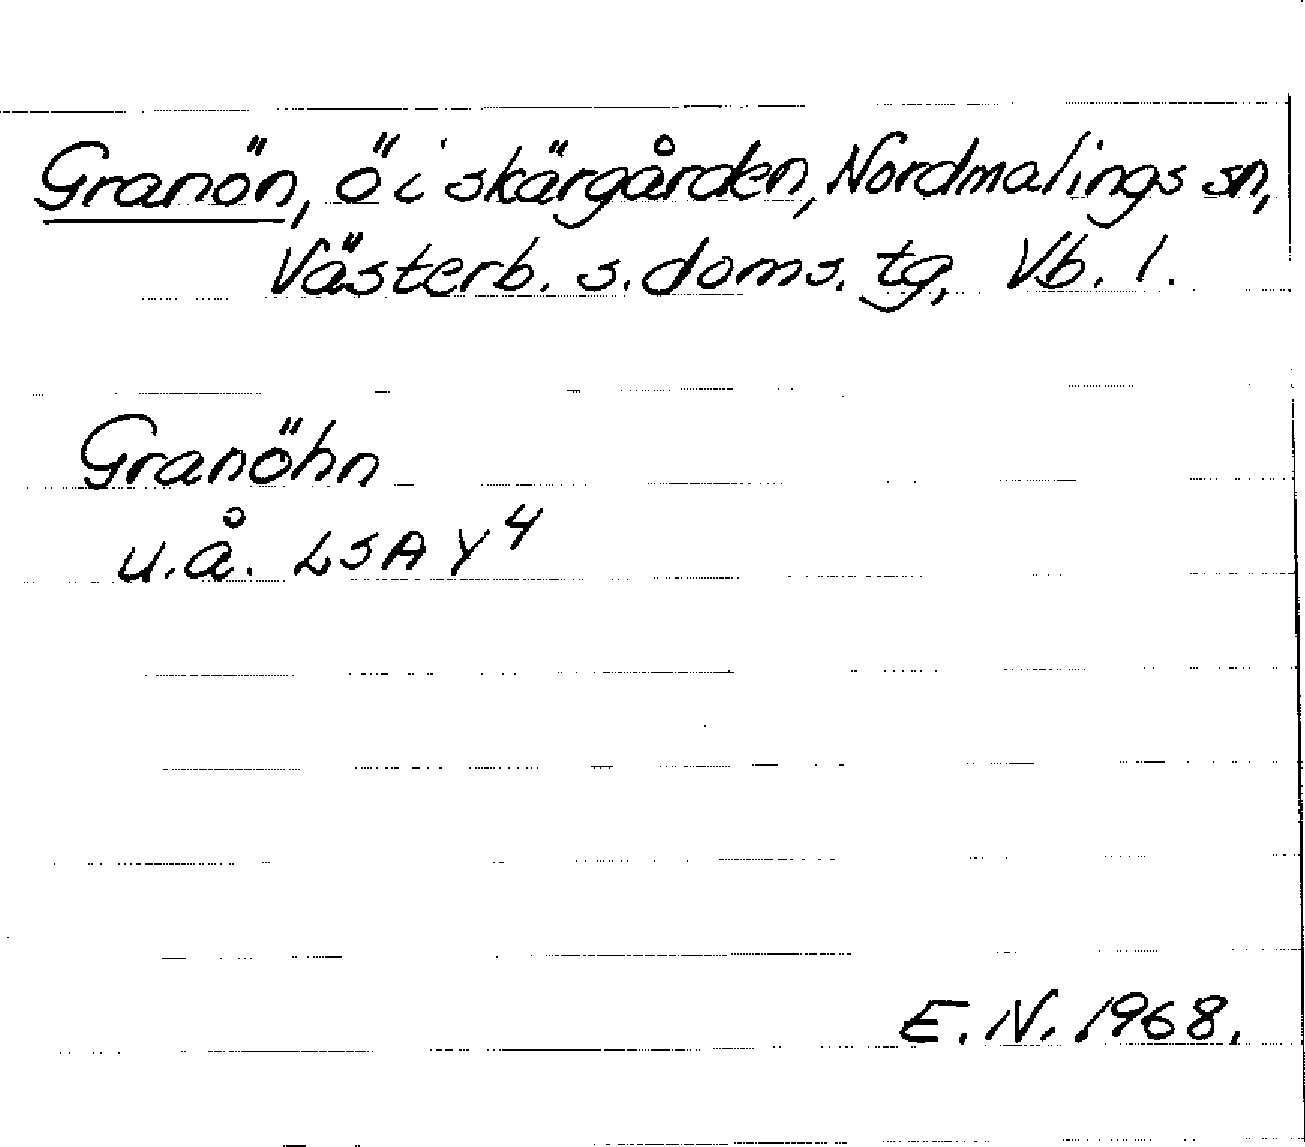 Granön, ö i skärgården, Nordmalings sn,
Västerb. s. doms. tg, Vb. l.
Granöhn
u.å. LSA Y 4
E. N. 1968.